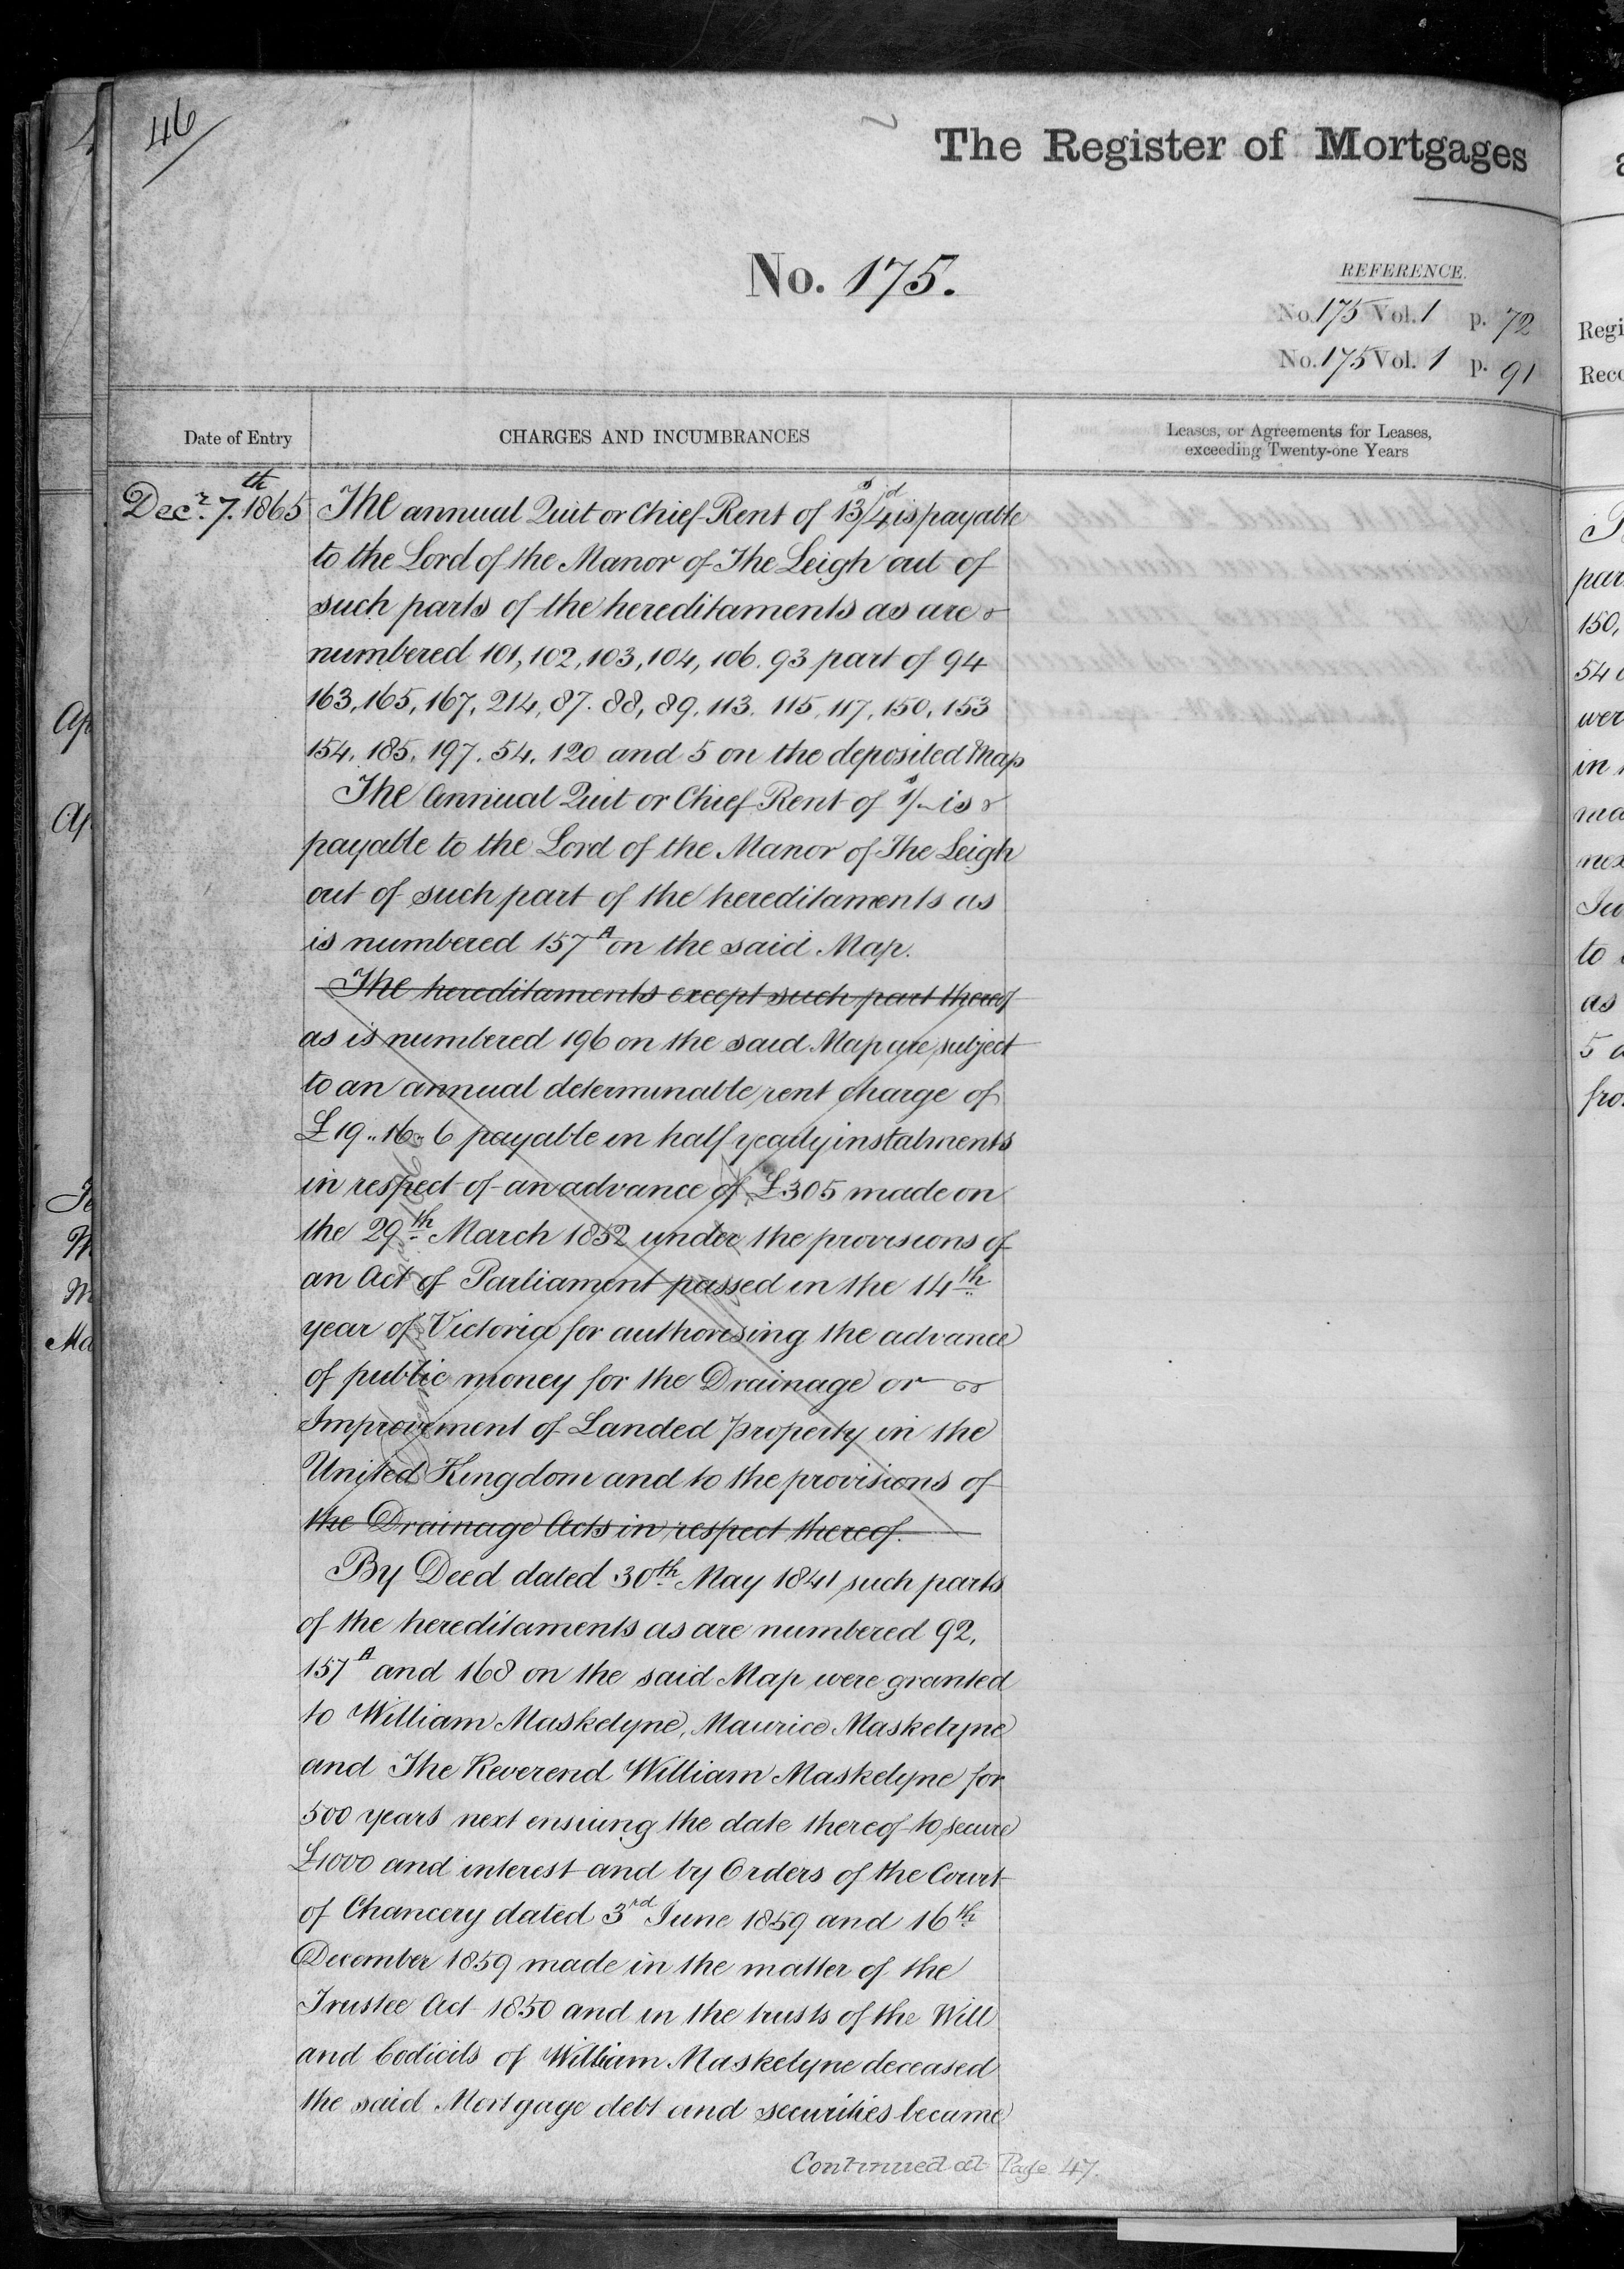 46
The Register of Mortgages
No. 175.
REFERENCE.
No. 175 Vol. 1 p. 72
No. 175 Vol. 1 p. 91
Date of Entry
CHARGES AND INCUMBRANCES
Leases, or Agreements for Leases,
exceeding Twenty-one Years
Decr. 7th. 1865
The annual Quit or Chief Rent of 13s/4d is payable
to the Lord of the Manor of The Leigh out of
such parts of the hereditaments as are
numbered 101, 102, 103, 104, 106. 93 part of 94
163, 165, 167, 214, 87. 88, 89, 113. 115, 117, 150, 153
154, 185, 197. 54, 120 and 5 on the deposited Map
The Annual Quit or Chief Rent of 1s/- is
payable to the Lord of the Manor of The Leigh
out of such part of the hereditaments as
is numbered 157A on the said Map.
The hereditaments except such part thereof
as is numbered 196 on the said Map are subject
to an annual determinable rent charge of
£19..16..6 payable in half yearly instalments
in respect of an advance of £305 made on
the 29th March 1852 under the provisions of
an Act of Parliament passed in the 14th
year of Victoria for authorising the advance
of public money for the Drainage or
Improvement of Landed Property in the
United Kingdom and to the provisions of
the Drainage Acts in respect thereof.
By Deed dated 30th May 1841 such parts
of the hereditaments as are numbered 92,
157A and 168 on the said Map were granted
to William Maskelyne, Maurice Maskelyne
and The Reverend William Maskelyne for
500 years next ensuing the date thereof to secure
£1000 and interest and by Orders of the Court
of Chancery dated 3rd June 1859 and 16th
December 1859 made in the matter of the
Trustee Act 1850 and in the trusts of the Will
and Codicils of William Maskelyne deceased
the said Mortgage debt and securities became
Continued at Page 47.